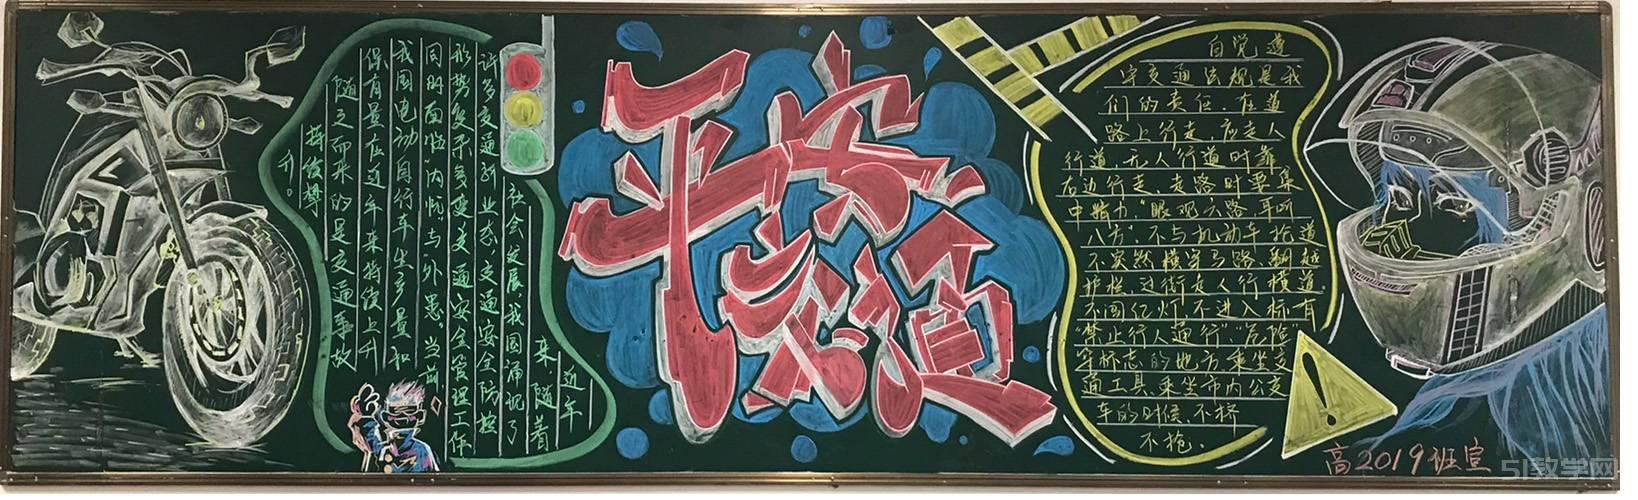 近年
来,随着
社会发展,我国涌现了
许多交通新业态,交通安全防控
形势复杂多变,交通安全管理工作
同时面临"内忧"与"外患"。当前
我国电动自行车生产量和
保有量在近年来持续上升
随之而来的是交通事故
持续攀
升。
平安
交通
自觉遵
守交通法规是我
们的责任,在道
路上行走,应走人
行道,无人行道时靠
右边行走,走路时要集
中精力,"眼观六路,耳听
八方",不与机动车抢道
不突然横穿马路、翻越
护栏,过街走人行横道,
不闯红灯,不进入标有
"禁止行人通行"、"危险"
等标志的地方乘坐交
通工具,乘坐市内公交
车的时候,不挤
不抢。
高2019班宣
51数学网